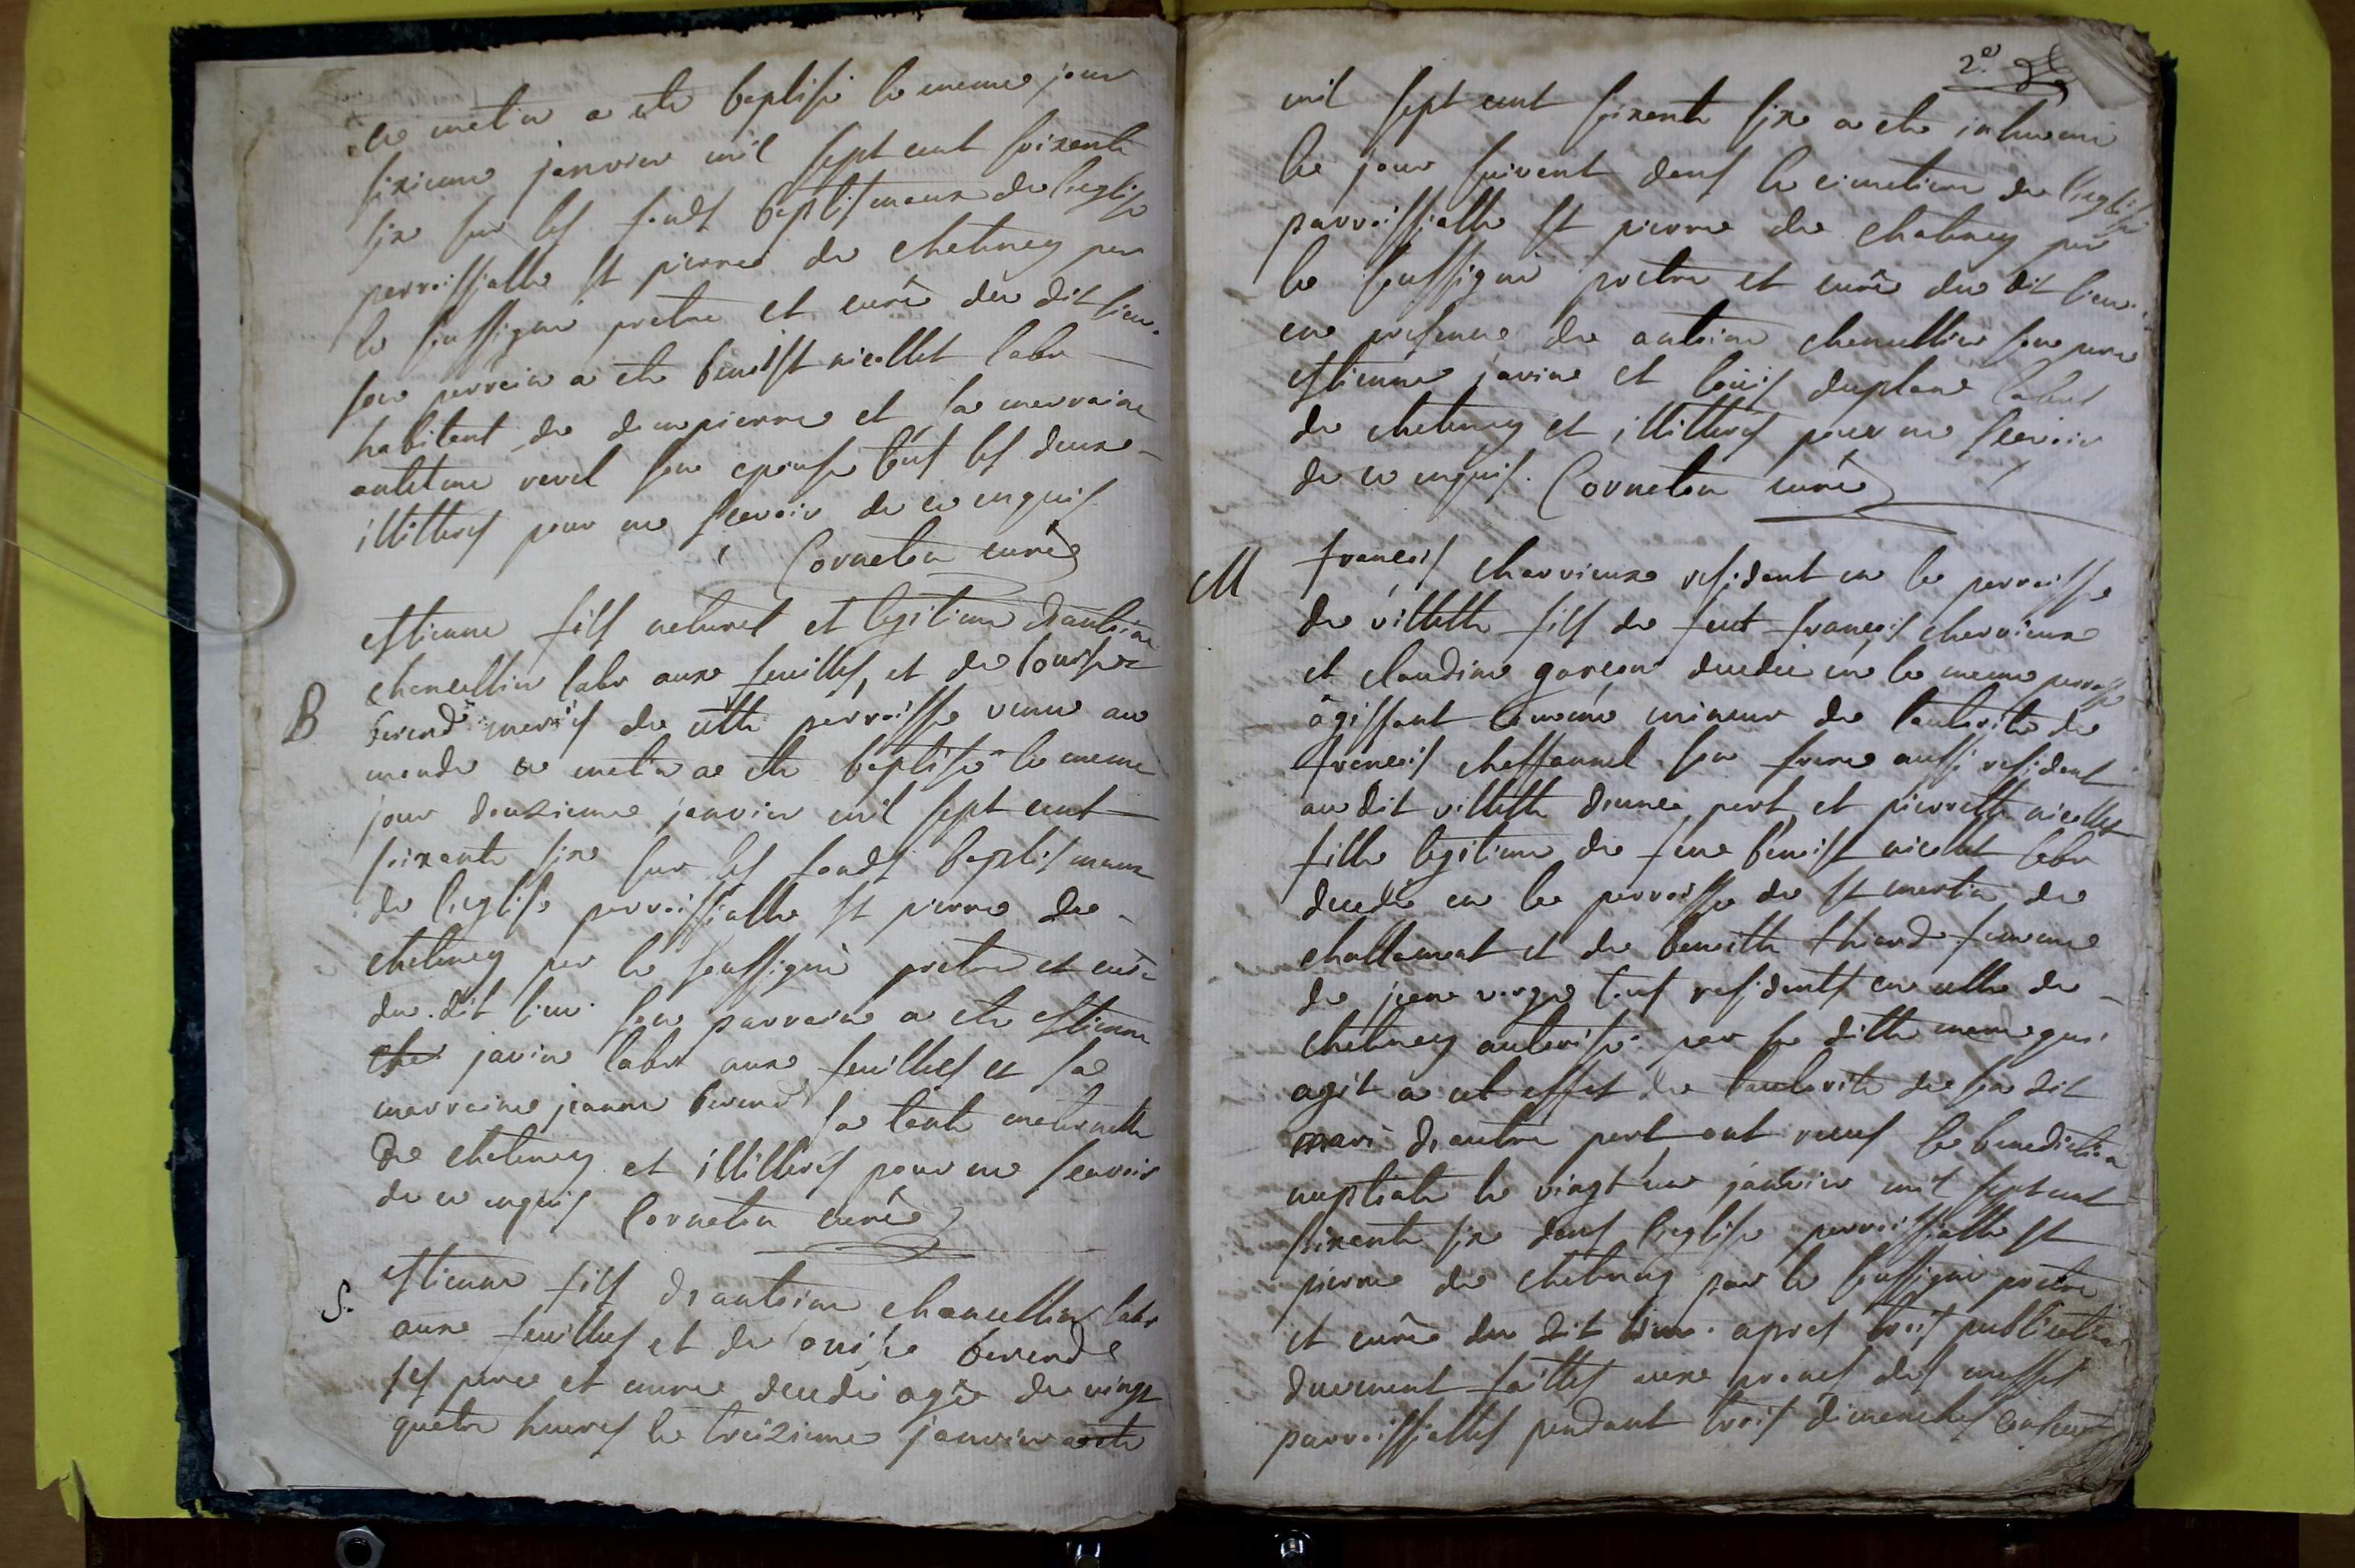 ce matin a ete baptisé le meme jour
sixieme janvier mil sept cent soixante
six sur les fonds baptismaux de l'eglise
parroissialle st pierre de chatenay par
le soussigné pretre et curé du dit lieu.
son parrain a ete benoist nicollet labr
habitant de dompierre et sa marraine
antelme revel son epouse tous les deux
illitterés pour ne scavoir de ce enquis
Corneton curé
estienne fils naturel et legitime d'antoine
chancellin labr aux feuilles, et de louise
B
berend mariés de cette parroisse venu au
monde ce matin a ete baptisé le meme
jour douzieme janvier mil sept cent
soixante six sur les fonds baptismaux
de l'eglise parroissialle st pierre de
chatenay par le soussigné pretre et curé
du dit lieu. son parrain a ete estienne
javin labr aux feuilles et sa
marraine jeanne berend sa tante maternelle
de chatenay et illitterés pour ne scavoir
de ce enquis Corneton curé
S.
estienne fils d'antoine chancellin labr
aux feuilles et de louise berend
ses pere et mere decedé agé de vingt
quatre heures le treizieme janvier a ete
2e
mil sept cent soixante six a ete inhumé
le jour suivant dans le cimetiere de l'eglise
parroissialle st pierre de chatenay par
le soussigné pretre et curé du dit lieu.
en presence de antoine chancellin son pere
estienne javin et loüis duplan labrs
de chatenay et illitterés pour ne scavoir
de ce enquis. Corneton curé
M
francois charvieux resident en la parroisse
de villette fils de feut francois charvieux
et claudine garçon decedée en la meme parroisse
agissant comme mineur de l'autorité de
francois chaffannel son frere aussi resident
au dit villette d'une part, et pierrette nicollet
fille legitime de feu benoist nicollet labr
decedé en la parroisse de st martin de
challamont et de benoitte thiand femme
de jean verge tous residents en celle de
chatenay autorisée par sa ditte mere qui
agit a cet effet de l'autorité de son dit
mari d'autre part, ont receus la benediction
nuptiale le vingt un janvier mil sept cent
soixante six dans l'eglise parroissialle st
pierre de chatenay par le soussigné pretre
et curé du dit lieu. apres trois publications
duement faittes aux prones des messes
parroissialles pendant trois dimanches consecutifs